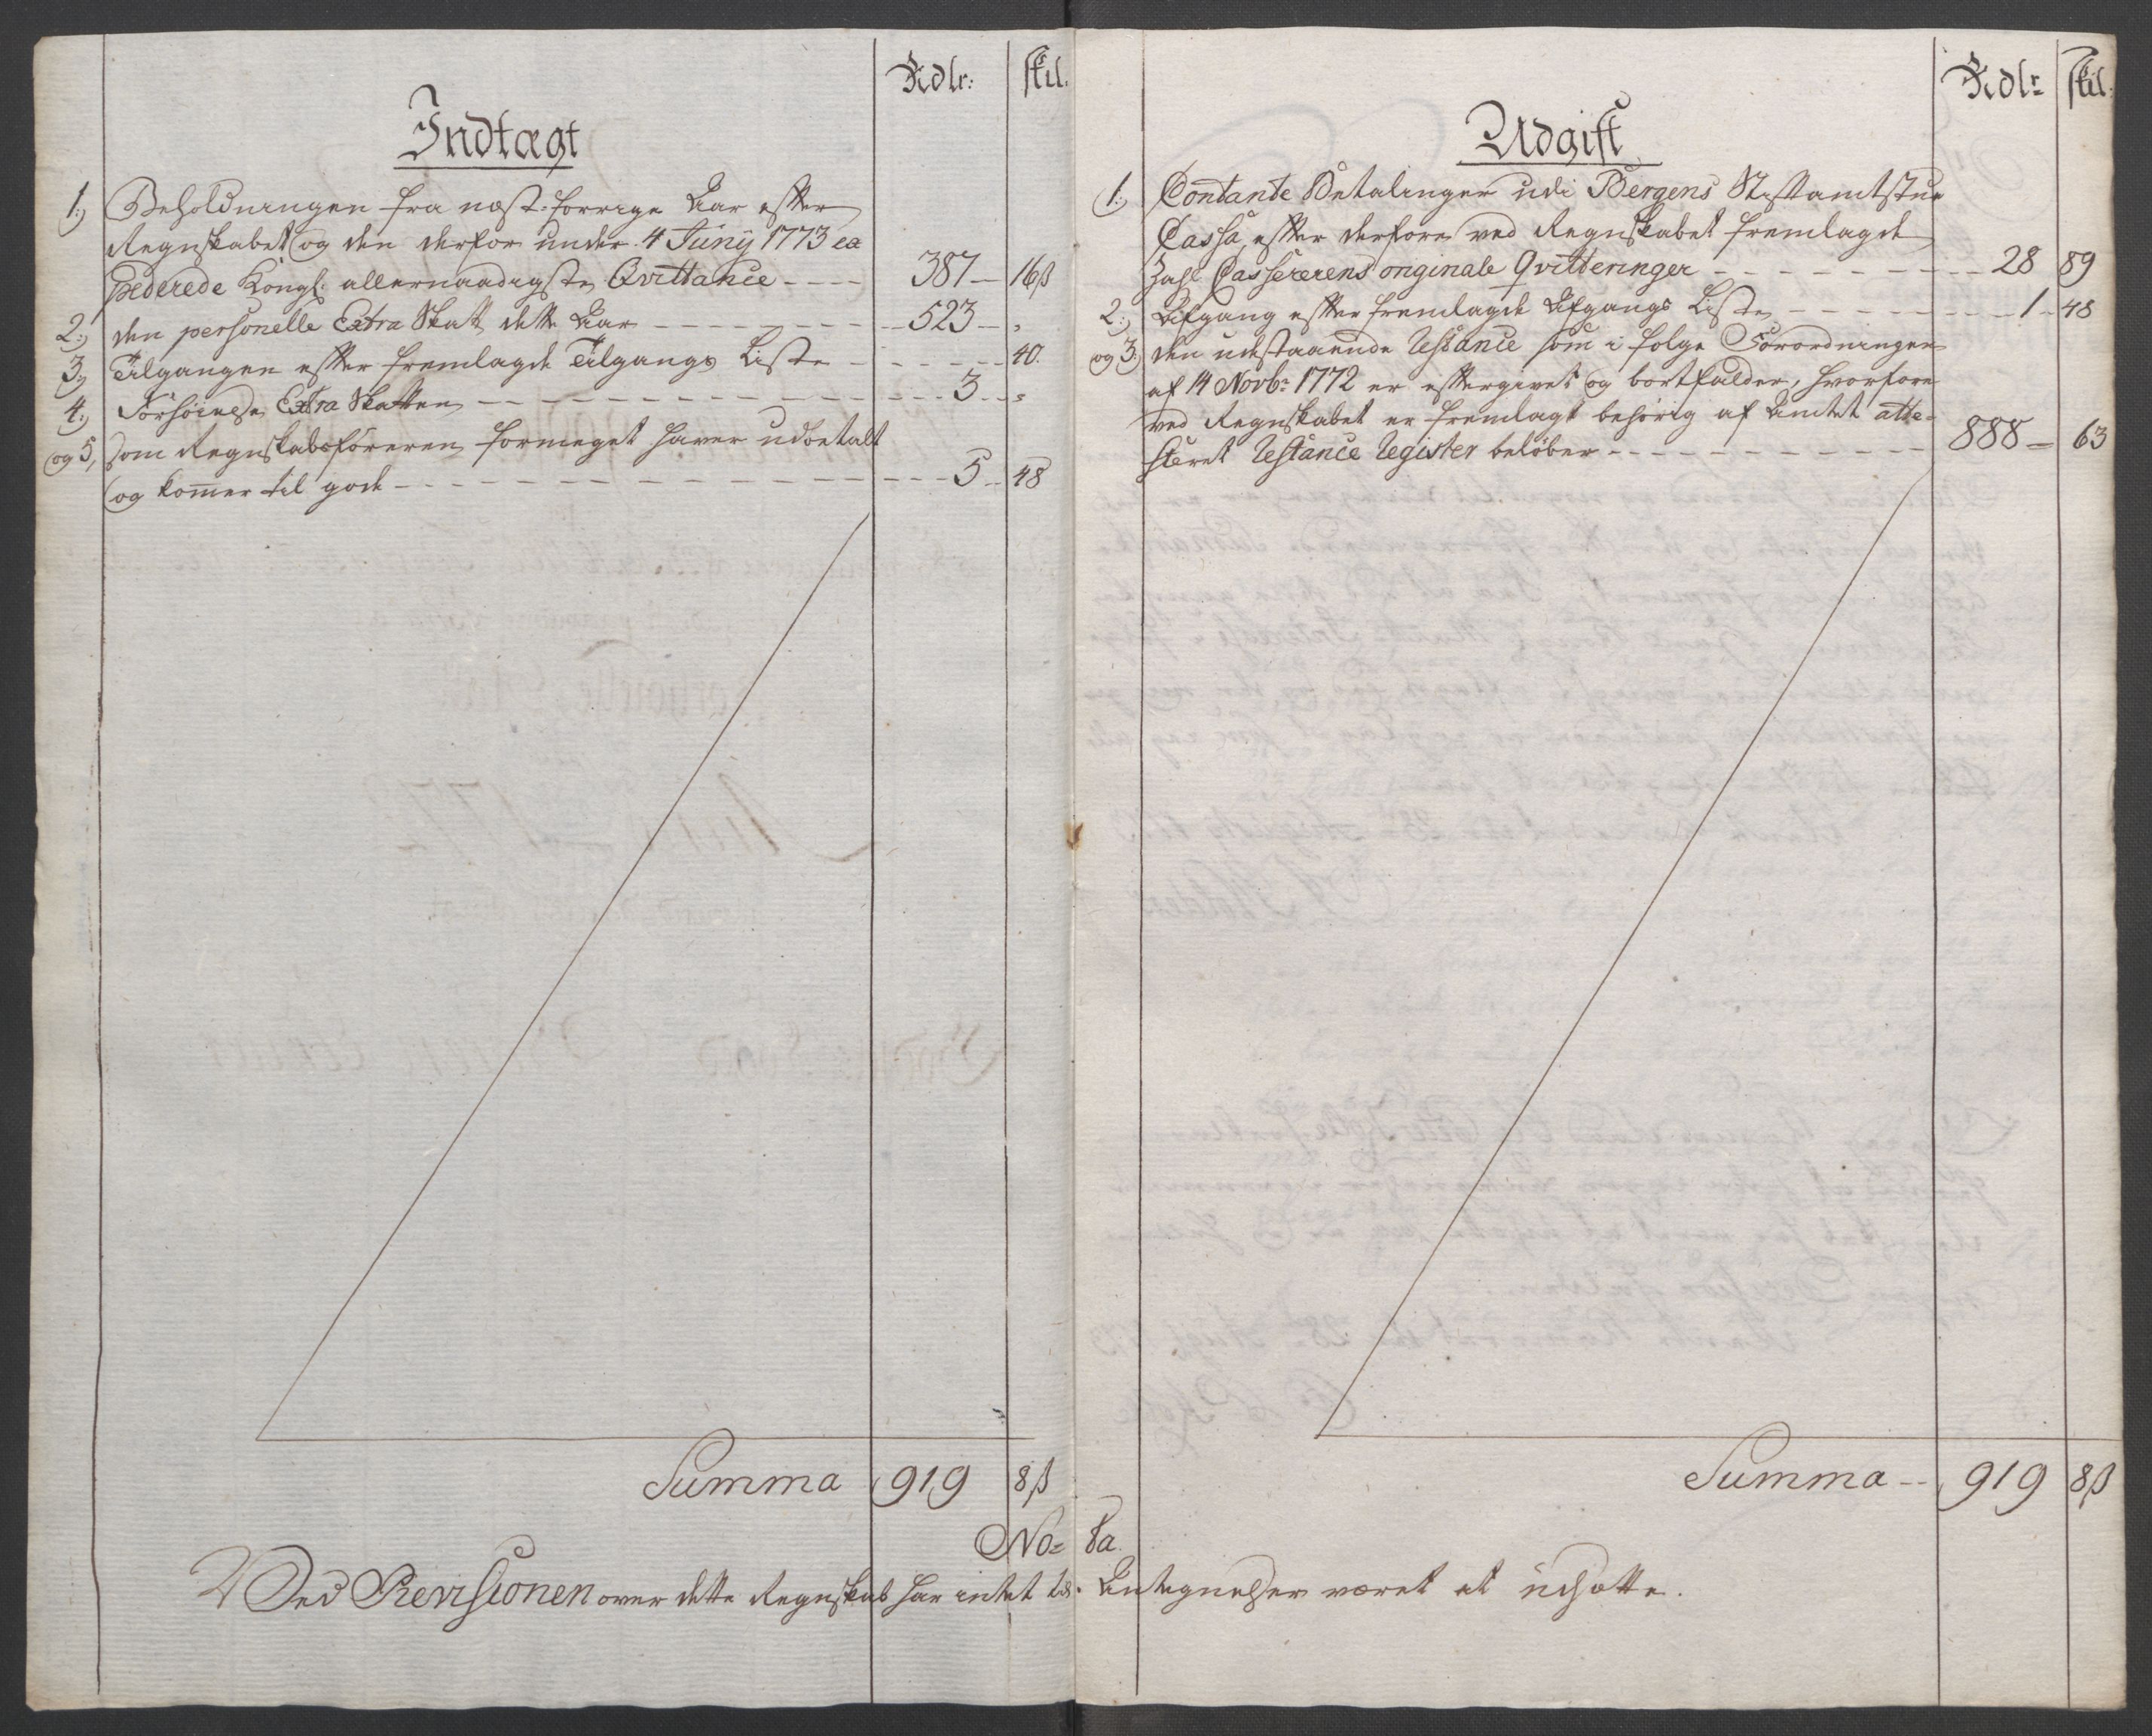 Rdlr: skil:
Indtægt
1.) Beholdningen fra næst-forrige Aar efter
Regnskabet og den derfor under 4 Junij 1773 ex
pederede Kongl: allernaadigste Qvittance ---- 387 - 16 β
2.) den personelle Extra Skatt dette Aar -------- 523 - "
3.) Tilgangen efter fremlagde Tilgangs Liste ----- 40.
4.) Forhøiede Extra Skatten --------------- 3 - "
og 5, som Regnskabsføreren formeget haver udbetalt
og kommer til gode ------------------ 5 - 48
Summa 919 8 β
Rdlr skil:
Udgift
1.) Contante Betalinger udi Bergens Stiftamtstue
Cassa, efter derfore ved Regnskabet fremlagde
Zahl Cassererens originale Qvitteringer ---------- 28 89
2.) Afgang efter fremlagde Afgangs Liste --------- 1 - 48
og 3.) den udestaaende Restance som i følge Forordningen
af 14 Novbr: 1772 er eftergivet og bortfalder, hvorfore
ved Regnskabet er fremlagt behørig af Amtet atte-
steret Restance Register beløber ------------ 888 = 63
Summa -- 919 8 β
No= 8a.
Ved Revisionen over dette Regnskab har intet til Antegnelser været at udsætte.